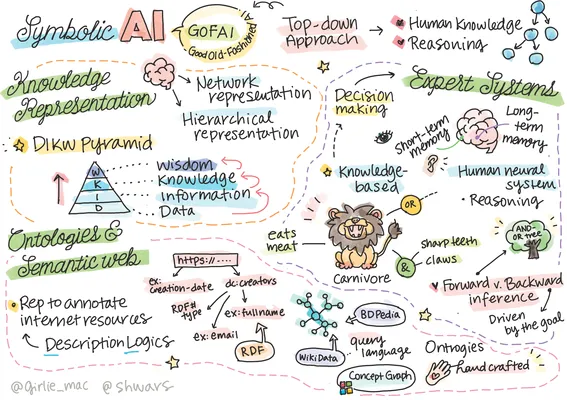 Symbolic AI
GOFAI
Good Old-Fashioned AI
Top-down
Approach
Human Knowledge
Reasoning
Knowledge
Representation
Network
representation
Hierarchical
representation
DIKW Pyramid
W
K
I
D
Wisdom
Knowledge
Information
Data
Expert Systems
Decision
making
short-term
memory
Long-
term
memory
Knowledge-
based
Human neural
system
Reasoning
OR
eats
meat
Carnivore
sharp teeth
claws
&
AND-
OR tree
Forward v. Backward
inference
Driven
by the goal
Ontologies &
Semantic web
Rep to annotate
internet resources
Description Logics
https://....
ex:
creation-date
dc:creators
RDF#
type
ex:fullname
ex:email
RDF
BDPedia
WikiData
query
language
Concept Graph
Ontrogies
hand crafted
@girlie_mac @shwars